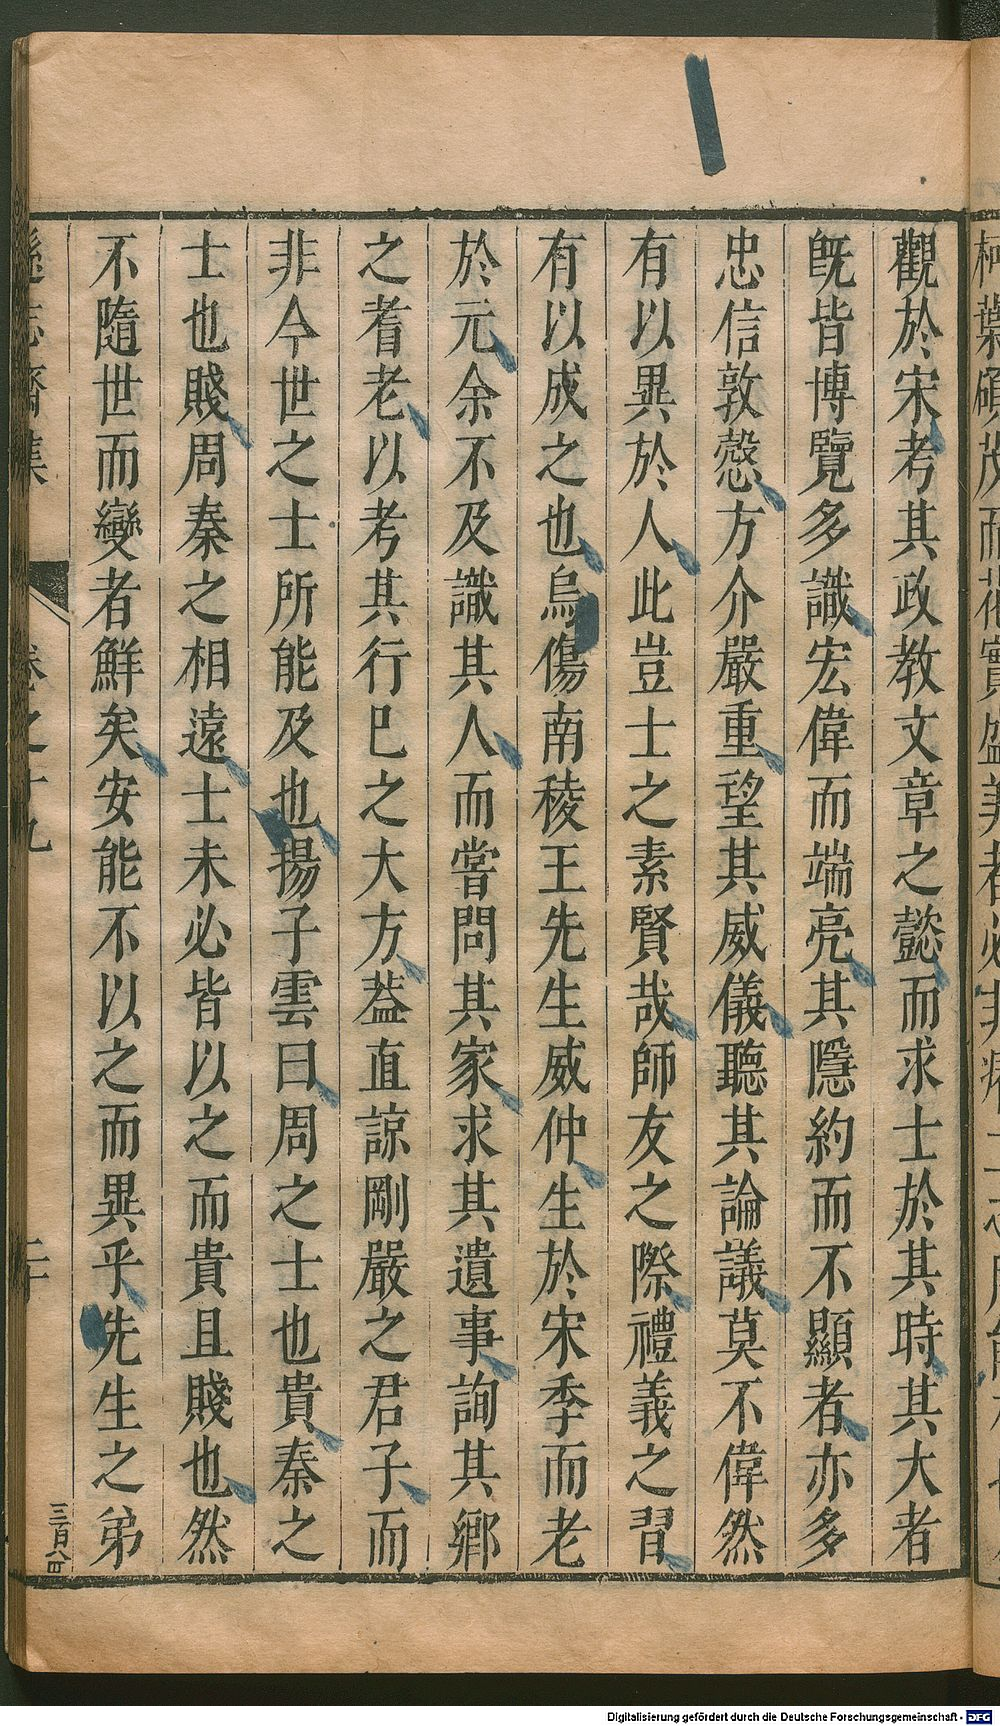 觀於宋考其政教文章之懿而求士於其時其大者
旣皆博覽多識宏偉而端亮其隱約而不顯者亦多
忠信敦慤方介嚴重望其威儀聽其論議莫不偉然
有以異於人此豈士之素賢哉師友之際禮義之習
有以成之也烏傷南稜王先生威仲生於宋季而老
於元余不及識其人而嘗問其家求其遺事詢其鄉
之耆老以考其行巳之大方葢直諒剛嚴之君子而
非今世之士所能及也揚子雲曰周之士也貴秦之
士也賤周秦之相遠士未必皆以之而貴且賤也然
不隨世而變者鮮矣安能不以之而異乎先生之弟
遜志齋集
卷之十九
二十
三百八四
Digitalisierung gefördert durch die Deutsche Forschungsgemeinschaft - DFG